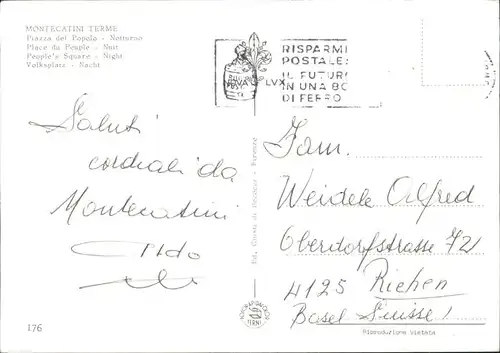 MONTECATINI TERME
Piazza del Popolo - Notturno
Place du Peuple - Nuit
People's Square - Night
Volksplatz - Nacht
RISPARMI
POSTALE:
IL FUTUR
IN UNA BO
DI FERRO
NOVA LVX
Saluti
cordiali da
Montecatini
Aldo
Fam.
Weidele Alfred
Oberdorfstrasse 72
4125 Riehen
Basel Suisse!
Riproduzione Vietata
176